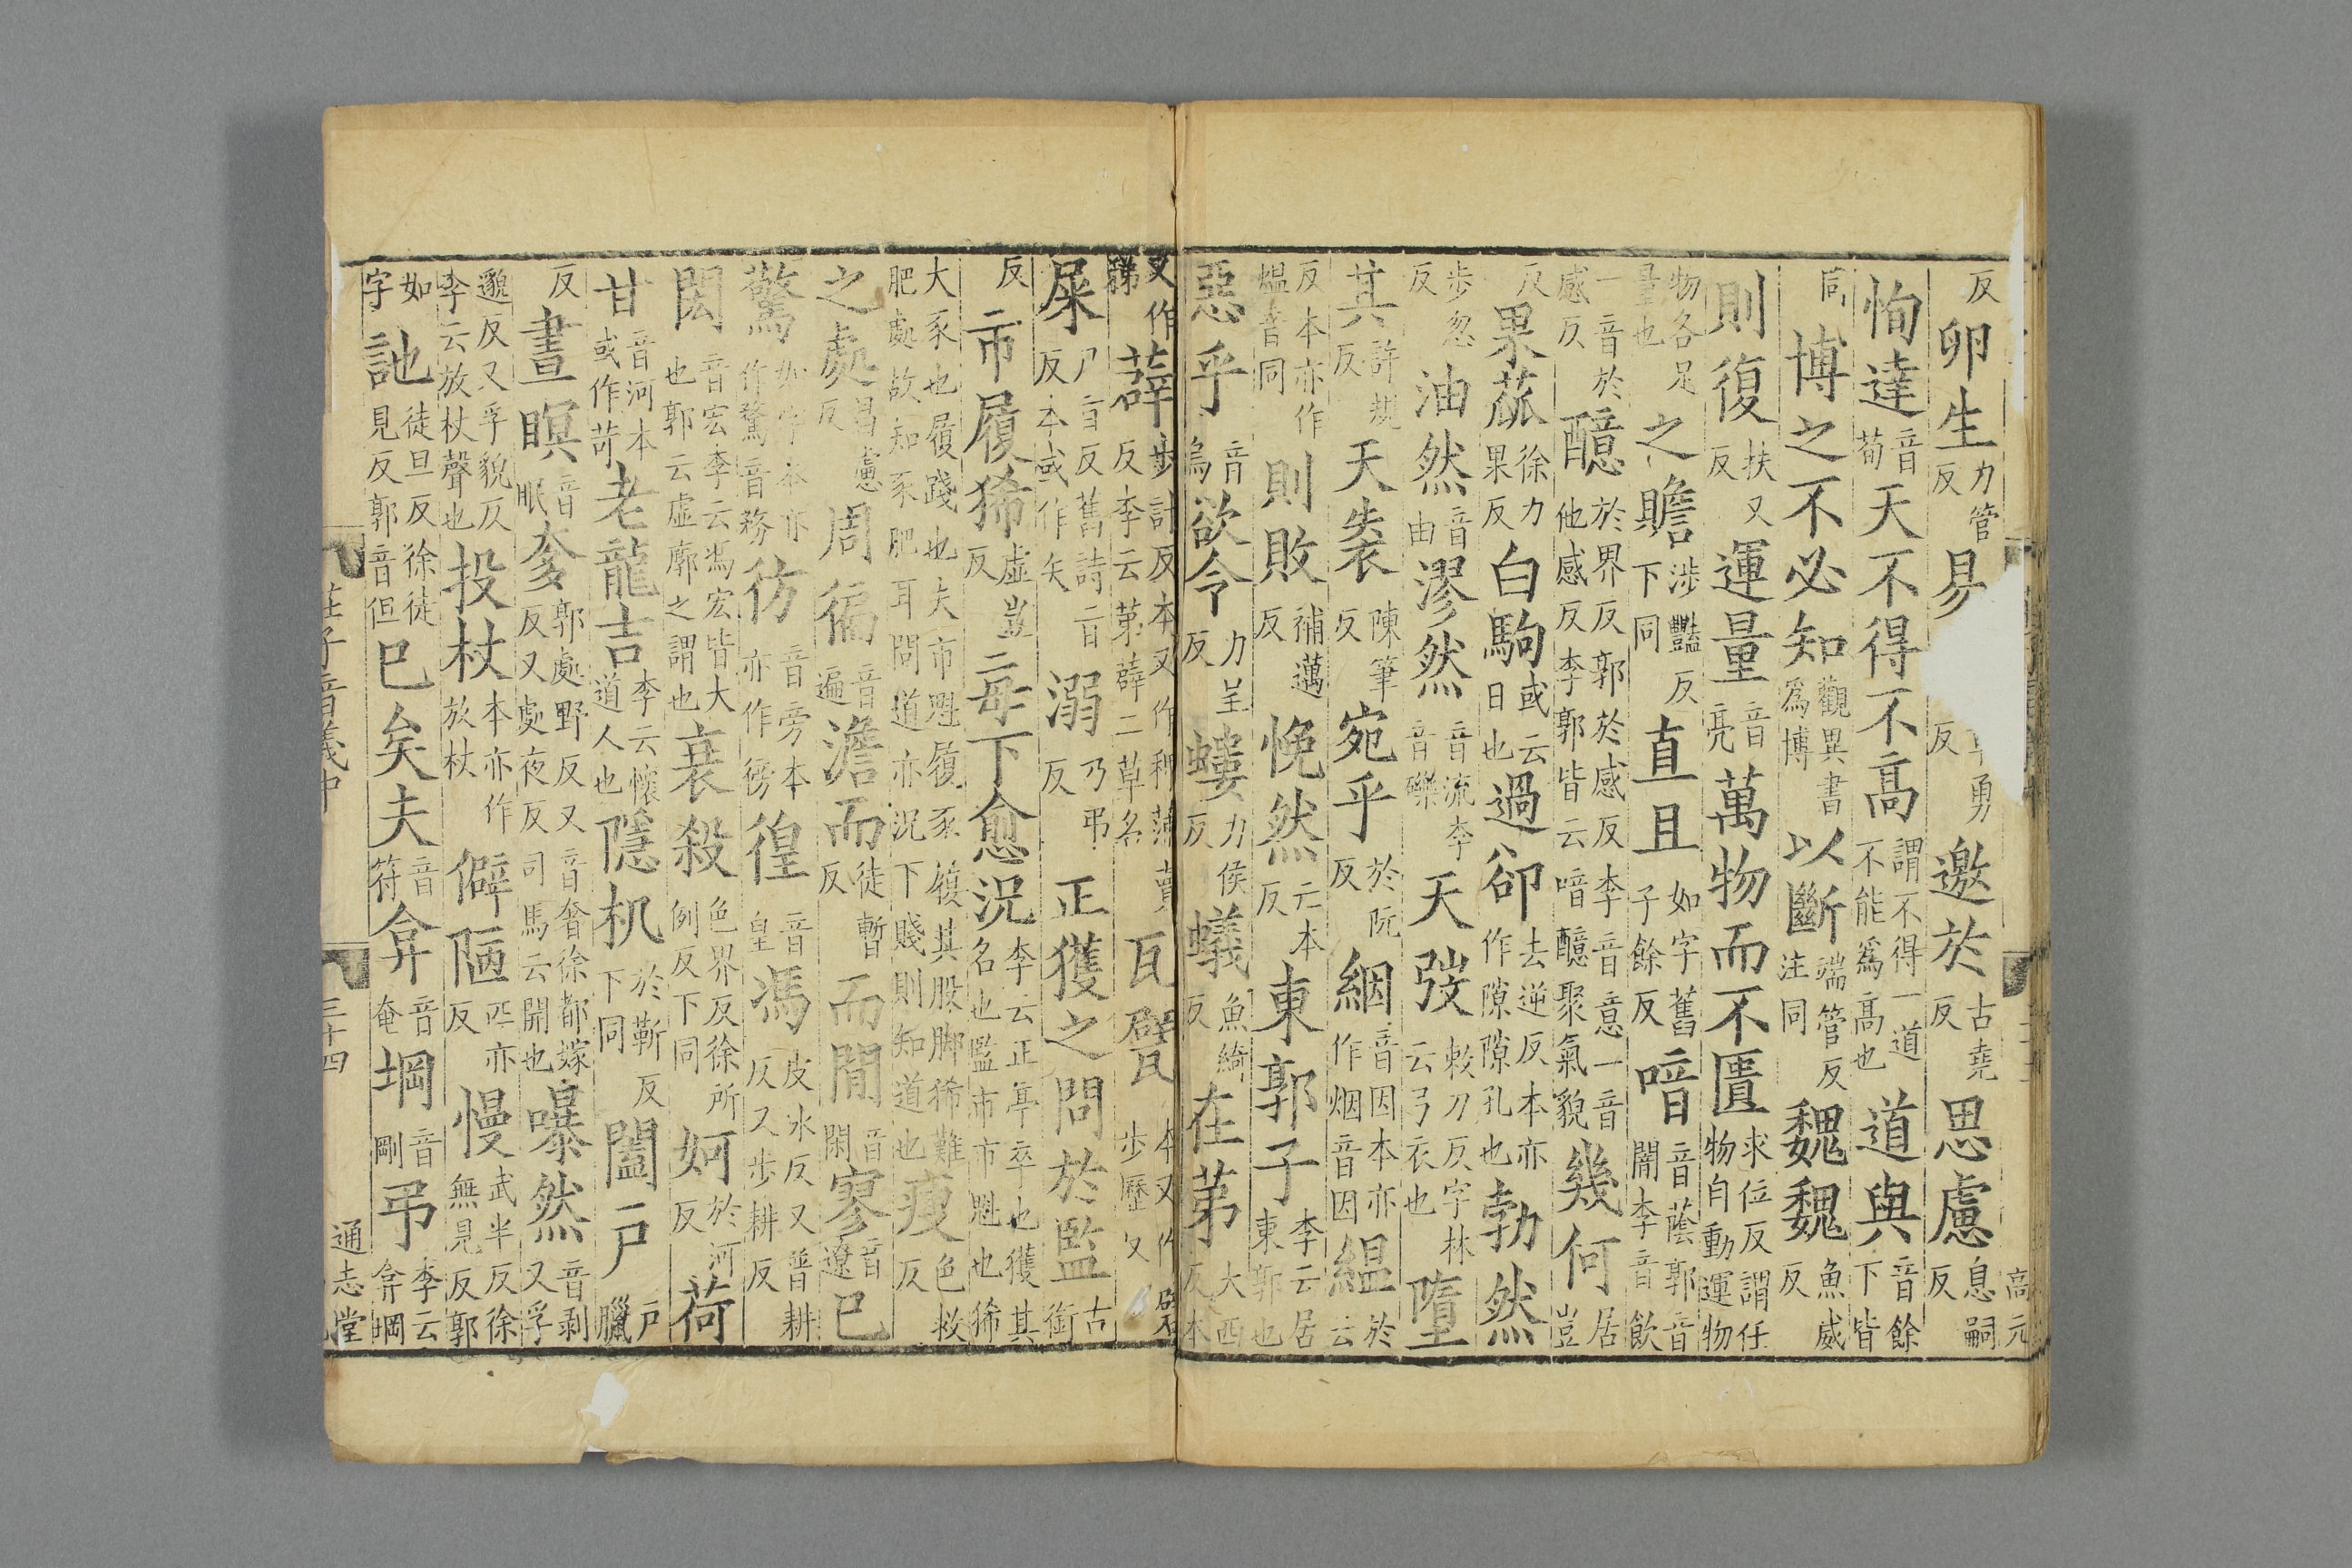 反卵生力管反易勇反邀於古堯反思慮息嗣反
恂達音荀天不得不高謂不得一道不能爲高也道與音餘下皆
同博之不必知觀異書爲博以斷端管反注同魏魏魚威反
則復扶又反運量音亮萬物而不匱求位反謂任物自動運物
物各足量也之贍涉豔反下同直且如字舊子餘反喑音蔭郭音闇李音飲
一音於感反醷於界反郭於感反李音意一音他感反李郭皆云喑醷聚氣貌幾何居豈
反果蓏徐力果反白駒或云日也過郤去逆反本亦作隙隙孔也勃然
步忽反油然音由漻然音流李音礫天弢敕刀反字林云弓衣也墮
其許規反天袠陳筆反宛乎於阮反絪音因本亦作烟音因縕於云
反本亦作熅音同則敗補邁反悗然亡本反東郭子李云居東郭也
惡乎音烏欲令力呈反螻力侯反蟻魚綺反在苐大西反本
又作稊薜步計反本又作稗蒲賣反李云苐薜二草名瓦甓本又作步歷反
屎尸旨反舊詩旨反本或作矢溺乃弔反正獲之問於監古銜
反市履狶虛豈反每下愈況李云正亭卒也獲其名也監市市魁也狶
大豕也履踐也夫市魁履豕履其股脚狶難肥處故知豕肥耳問道亦況下賤則知道也瘦色救反
之處昌慮反周徧音遍澹而徒暫反而閒音閑寥音遼已
驚如字本亦作騖音務彷音旁本亦作徬徨音皇馮皮氷反又普耕反又步耕反
閎音宏李云馮宏皆大也郭云虛廓之謂也衰殺色界反徐所例反下同妸於河反荷
甘音河本或作苛老龍吉李云懷道人也隱机於靳反下同闔戶戶臘
反晝瞑音眠奓郭處野反又音奢徐都嫁反又處夜反司馬云開也曝然音剥又孚
邈反又孚貌反李云放杖聲也投杖本亦作放杖僻陋匹亦反慢武半反徐無見反郭
如字訑徒旦反徐徒見反郭音但已矣夫音符弇音奄堈音剛弔李云弇堈
莊子音義中　三十四　通志堂
高元